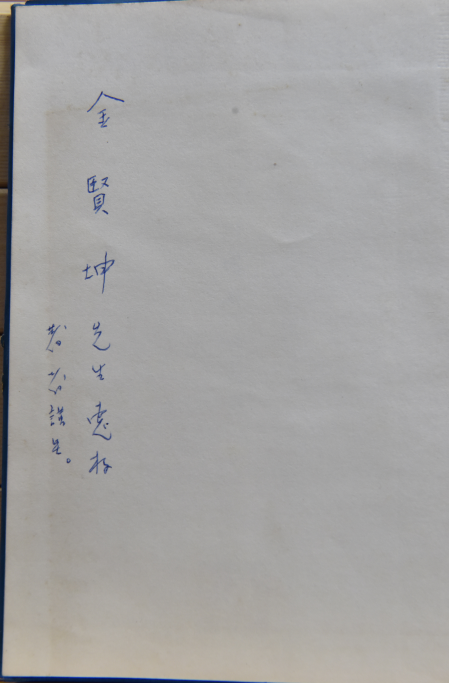 金賢坤先生惠存
著者謹呈。